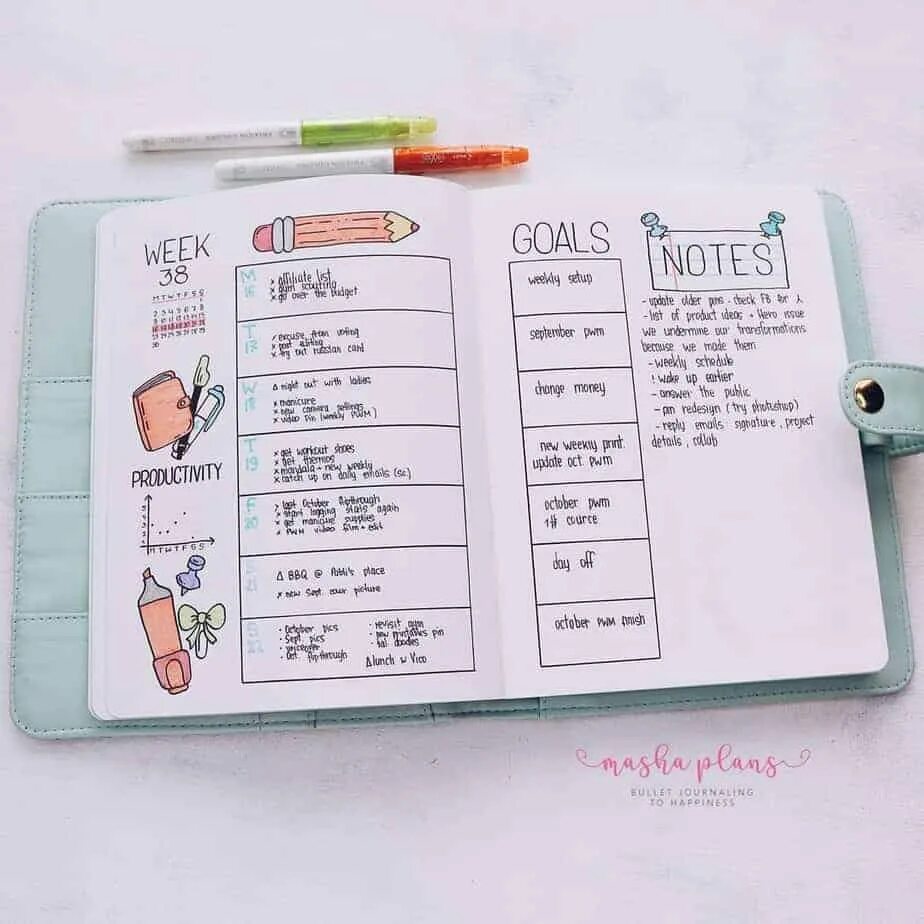 WEEK
38
M T W T F S S
1
2 3 4 5 6 7 8
9 10 11 12 13 14 15
16 17 18 19 20 21 22
23 24 25 26 27 28 29
30
PRODUCTIVITY
M T W T F S S
M
16
x affiliate list
x gum scouting
x go over the budget
T
17
/ excuse from voting
x post editing
x try out russian card
W
18
Δ night out with ladies
x manicure
x new camera settings
x video pin (weekly PWM)
T
19
x get workout shoes
x get thermos
x mandala + new weekly
x catch up on daily emails (sc.)
F
20
> last October flipthrough
x start logging stats again
x get manicure supplies
x PWM video film + edit
S
21
Δ BBQ @ place
x new Sept. cour picture
S
22
· October pics
· Sept. pics
· Oct. flipthrough
· revisit gum
· new printables pin
· hal. doodles
Δ lunch w Vico
GOALS
weekly setup
september pwm
change money
new weekly print.
update oct. pwm
october pwm
1# cource
day off
october pwm finish
NOTES
- update older pins · check FB for
- list of product ideas + Hero issue
we undermine our transformations
because we made them
- weekly schedule
! wake up earlier
- answer the public
- pin redesign (try photoshop)
- reply emails signature, project
details, collab
masha plans
BULLET JOURNALING
TO HAPPINESS